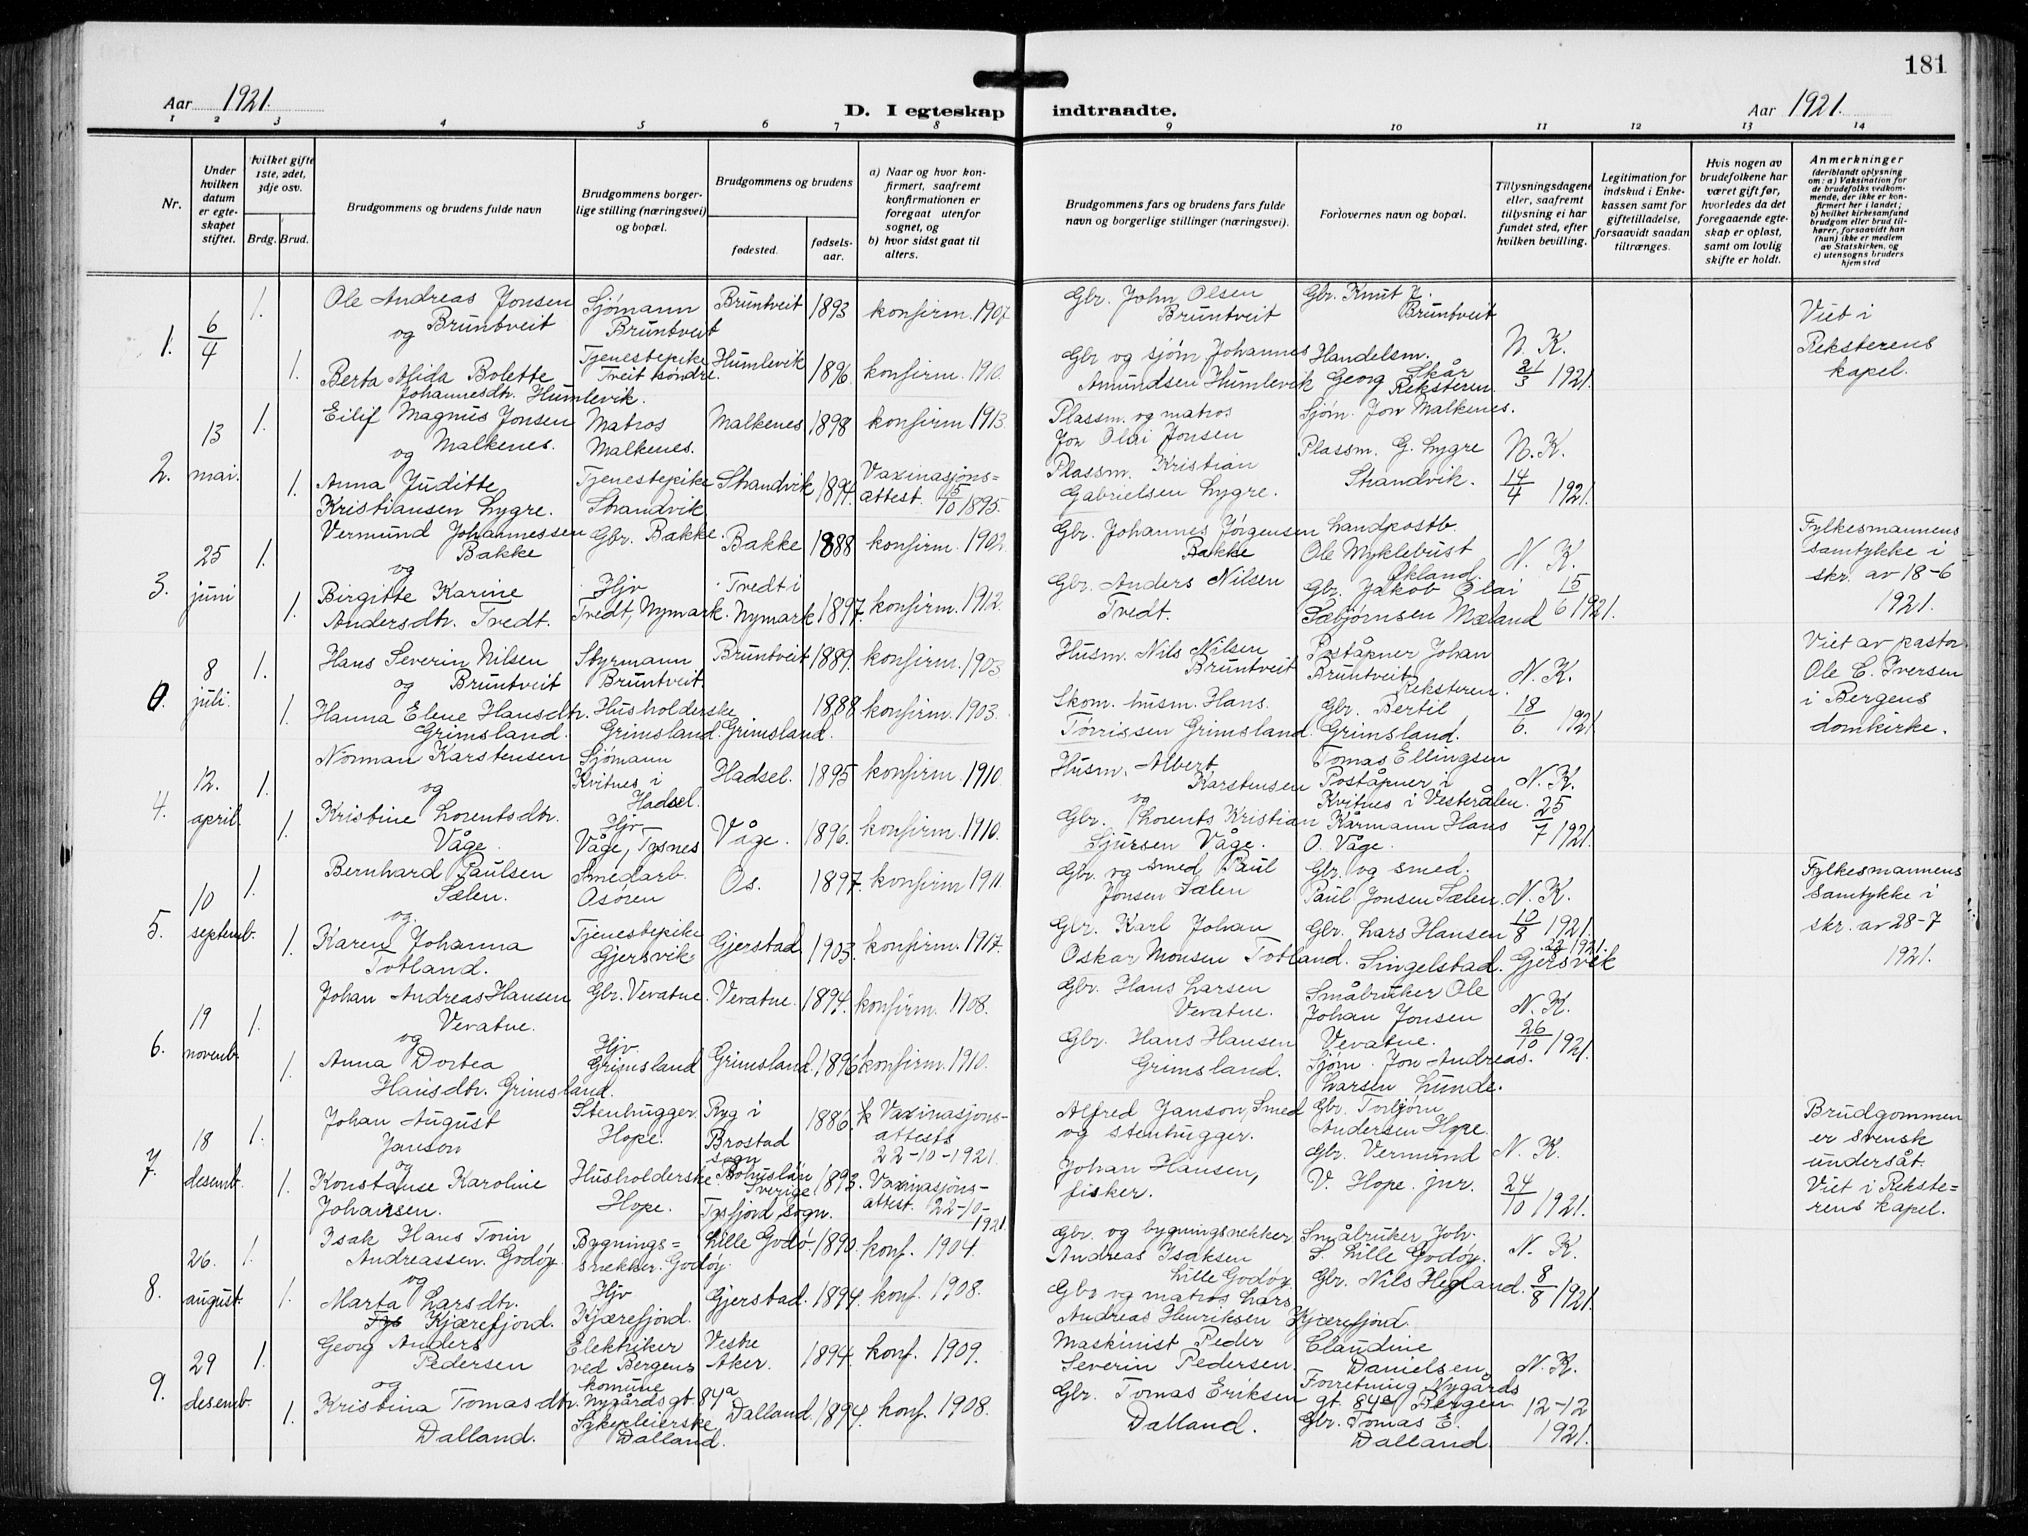 181
Aar 1921.
D. I egteskap indtraadte.
Aar 1921.
1 2 3 4 5 6 7 8 9 10 11 12 13 14
Nr.
Under hvilken datum er egteskapet stiftet.
hvilket gifte 1ste, 2det, 3dje osv.
Brdg. Brud.
Brudgommens og brudens fulde navn
Brudgommens borgerlige stilling (næringsvei) og bopæl.
Brudgommens og brudens
fødested.
fødselsaar.
a) Naar og hvor konfirmert, saafremt konfirmationen er foregaat utenfor sognet, og
b) hvor sidst gaat til alters.
Brudgommens fars og brudens fars fulde navn og borgerlige stillinger (næringsvei).
Forlovernes navn og bopæl.
Tillysningsdagene eller, saafremt tillysning ei har fundet sted, efter hvilken bevilling.
Legitimation for indskud i Enkekassen samt for giftetilladelse, forsaavidt saadan tiltrænges.
Hvis nogen av brudefolkene har været gift før, hvorledes da det foregaaende egteskap er opløst, samt om lovlig skifte er holdt.
Anmerkninger (deriblandt oplysning om: a) Vaksination for de brudefolks vedkommende, der ikke er konfirmert her i landet; b) hvilket kirkesamfund brudgom eller brud tilhører, forsaavidt han (hun) ikke er medlem av Statskirken, og c) utensogns bruders hjemsted
1. 6/4 1. Ole Andreas Jonsen Bruntveit og Sjømann Bruntveit Bruntveit 1893 konfirm. 1907 Gbr. John Olsen Bruntveit Gbr. Knut J. Bruntveit N. K. 21/3 1921. Viet i Reksterens kapel.
1. Berta Alida Bolette Johannesdtr. Humlevik. Tjenestepike Tveit søndre. Humlevik 1896. konfirm. 1910. Gbr og sjøm Johannes Amundsen Humlevik Handelsm. Georg Skår Reksteren.
2. 13 mai. 1. Eilif Magnus Jonsen Malkenes. og Matros Malkenes. Malkenes 1898 konfirm 1913. Plassm. og matros Jon Olai Jonsen Sjøm. Jon Malkenes. N. K. 14/4 1921.
1. Anna Juditte Kristiansen Lygre. Tjenestepike Strandvik Strandvik 1894. Vaxinasjons=attest. 15/10 1895. Plassm. Kristian Gabrielsen Lygre. Plassm. G. Lygre Strandvik.
3. 25 juni 1. Vermund Johannessen Bakke og Gbr. Bakke. Bakke 1888 konfirm. 1902. Gbr. Johannes Jørgensen Bakke Landpostb. Ole Myklebust Økland. N. K. 15/6 1921. Fylkesmannens samtykke i skr. av 18-6 1921.
1. Birgitte Karine Andersdtr. Tvedt. Hjv Tvedt, Nymark. Tvedt i Nymark 1897. konfirm. 1912. Gbr. Anders Nilsen Tvedt. Gbr. Jakob Olai Sæbjørnsen Mæland
0. 8 juli. 1. Hans Severin Nilsen og Bruntveit Styrmann Bruntveit. Bruntveit 1889. konfirm. 1903. Husm. Nils Nilsen Bruntveit Poståpner Johan Bruntveit Reksteren. N. K. 18/6. 1921. Viet av pastor Ole C. Iversen i Bergens domkirke.
1. Hanna Elene Hansdtr. Grimsland. Husholderske Grimsland. Grimsland. 1888 konfirm. 1903. Skom. husm. Hans Tørrissen Grimsland. Gbr. Bertil Grimsland.
4. 12. april. 1. Norman Karstensen og Sjømann Kvitnes i Hadsel. Hadsel. 1895 konfirm. 1910. Husm. Albert Karstensen og Tomas Ellingsen Poståpner i Kvitnes i Vesterålen. N. K. 25/7 1921.
1. Kristine Lorentsdtr. Våge. Hjv Våge, Tysnes Våge. 1896. konfirm. 1910. Gbr. Lorents Kristian Sjursen Våge. Kårmann Hans O. Våge.
5. 10 septemb. 1. Bernhard Paulsen Sælen. og Smedarb. Osøren Os. 1897. konfirm 1911. Gbr. og smed Paul Jonsen Sælen Gbr. og smed. Paul Jonsen Sælen. N. K. 10/8 1921. Fylkesmannens samtykke i skr. av 28-7 1921.
1. Karen Johanna Totland. Tjenestepike Gjersvik. Gjerstad. 1903. konfirm. 1917. Gbr. Karl Johan Oskar Monsen Totland. Gbr. Lars Hansen Singelstad. Gjersvik
6. 19 novemb. 1. Johan Andreas Hansen Vevatne. og Gbr. Vevatne. Vevatne. 1894. konfirm. 1908. Gbr. Hans Larsen Vevatne. Småbruker Ole Johan Jonsen Vevatne. N. K. 26/10 1921.
1. Anna Dortea Hansdtr. Grimsland. Hjv. Grimsland Grimsland. 1896 konfirm. 1910. Gbr. Hans Hansen Grimsland. Sjøm. Jon Andreas. Larsen Lunde.
7. 18 desemb. 1. Johan August Janson og Stenhugger. Hope. Ryg i Brostad sogn Bohuslän Sverige 1886. Vaxinasjons-attests 22-10-1921. Alfred Janson, Smed og stenhugger. Gbr. Torbjørn Andersen Hope. N. K. 24/10 1921. Brudgommen er svensk undersåt. Viet i Rekste=rens kapel.
1. Konstanse Karoline Johansen. Husholderske. Hope. Tysfjord sogn. 1893. Vaxinasjons-attest. 22-10-1921. Johan Hansen, fisker. Gbr. Vermund V. Hope. jnr.
8. 26. august. 1. Isak Hans Torin Andreassen Godøy. og Bygnings=snekker. Godøy. Lille Godø. 1890. konf. 1904. Gbr. og bygningssnekker Andreas Isaksen Lille Godøy. Småbruker Joh. S. Lille Godøy. N. K. 8/8 1921.
1. Marta Larsdtr. Kjærefjord. Hjv Kjærefjord. Gjerstad. 1894. konf. 1908. Gbr og matros Lars Andreas Henriksen Kjærefjord. Gbr. Nils Hegland.
9. 29 desemb. 1. Georg Anders Pedersen og Elektriker ved Bergens komune Nygårdsgt. 84a Vestre Aker. 1894. konf. 1909. Maskinist Peder Severin Pedersen. Claudine Danielsen Forretning Nygårdsgt. 84a Bergen N. K. 12-12 1921.
1. Kristina Tomasdtr. Dalland. Sykepleierske Dalland. Dalland. 1894. konf. 1908. Gbr. Tomas Eriksen Dalland. Gbr. Tomas E. Dalland.